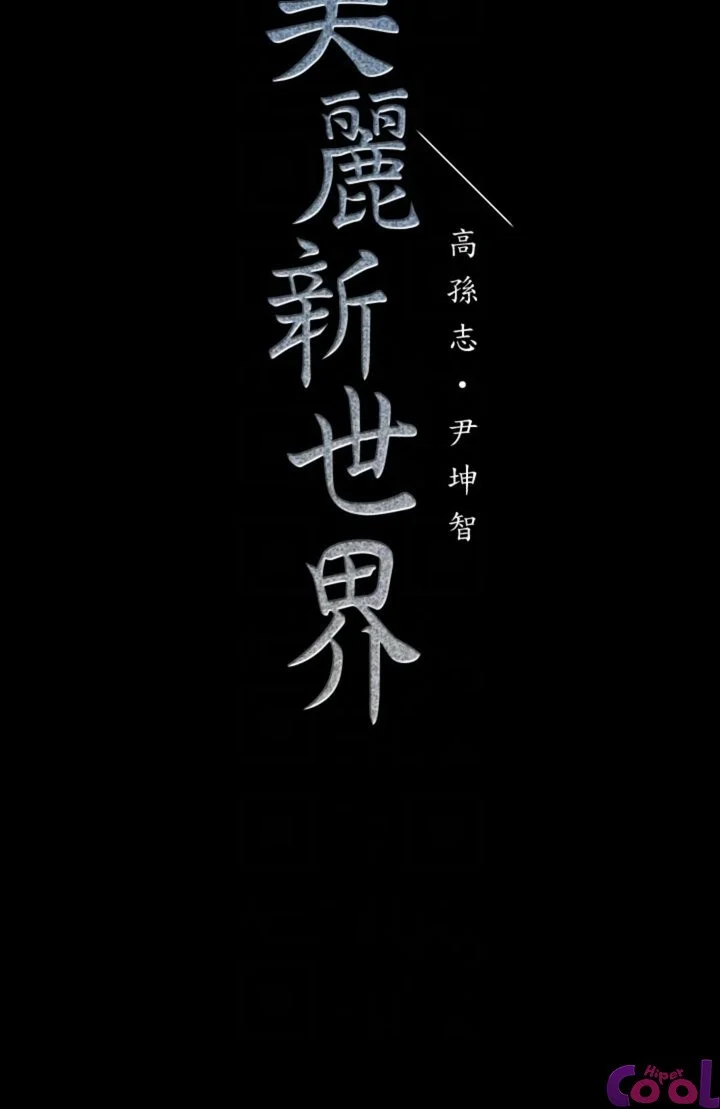 美麗新世界
高孫志・尹坤智
Hiper COOL